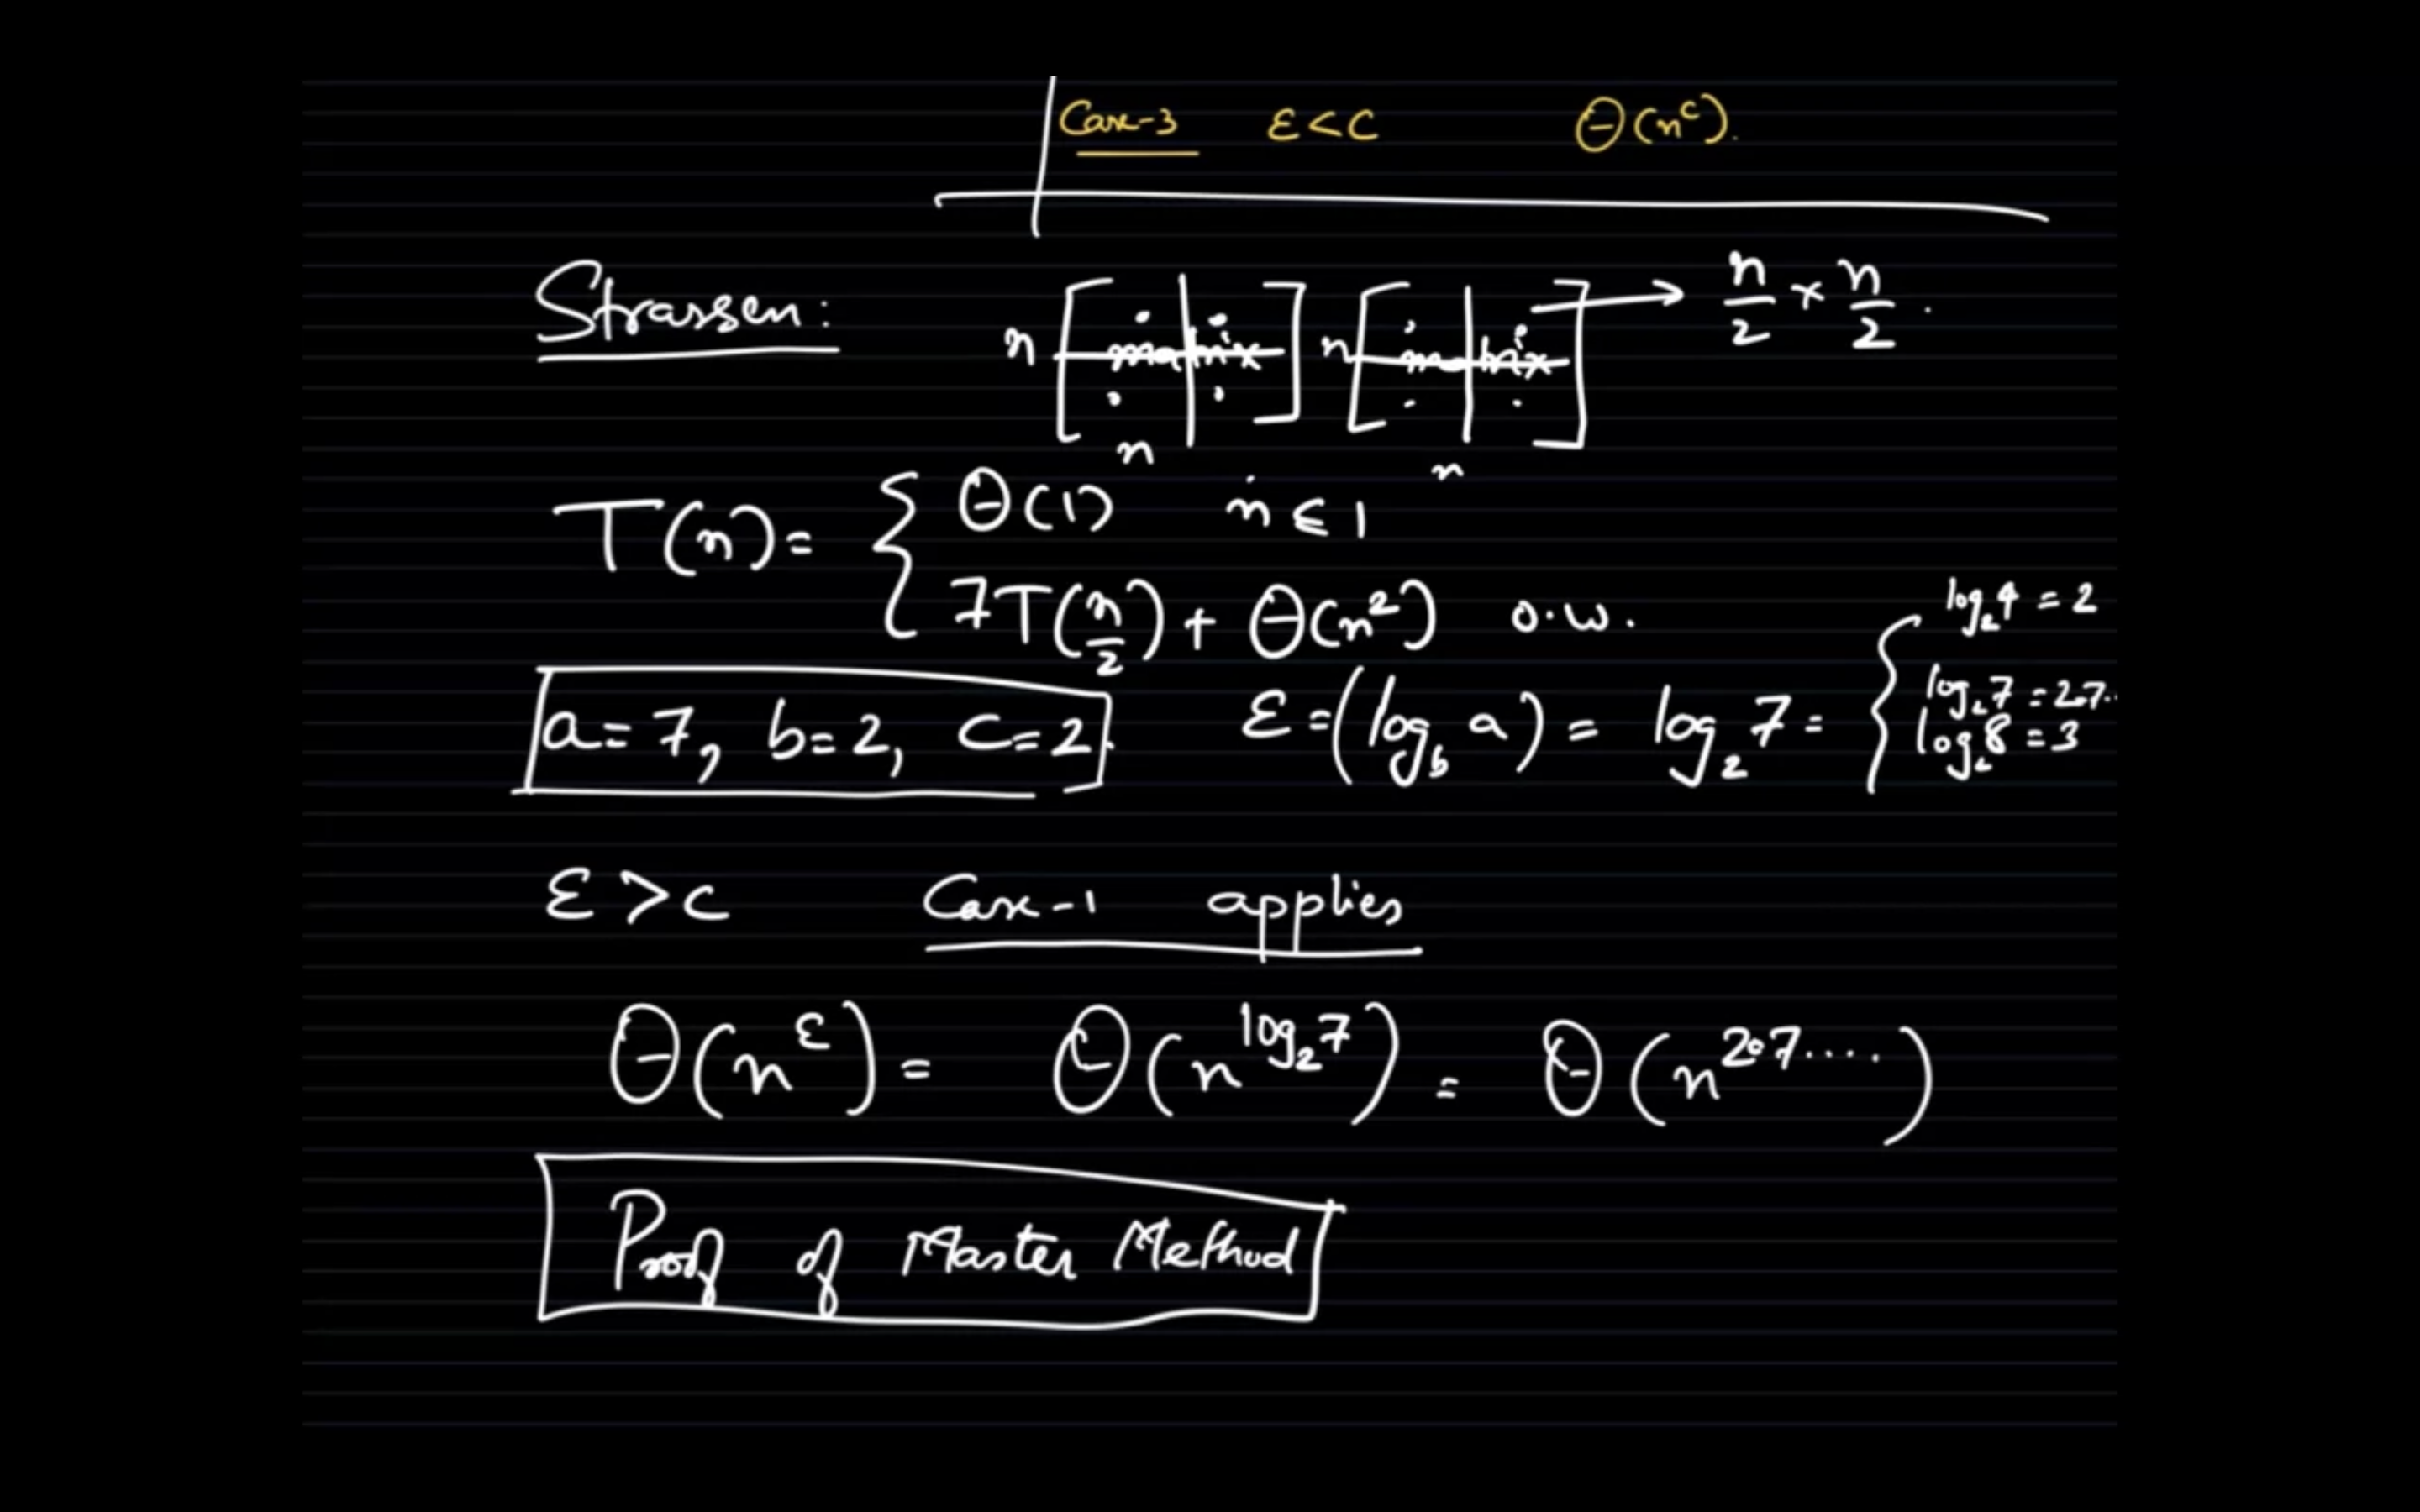 Case-3 ε < c Θ(n^c).
Strassen: n [matrix] n [matrix] → n/2 × n/2.
n n
T(n) = { Θ(1) n ≤ 1
7T(n/2) + Θ(n²) o.w.
log₂4 = 2
a = 7, b = 2, c = 2. ε = (log_b a) = log₂7 = { log₂7 = 2.7..
log₂8 = 3
ε > c Case-1 applies
Θ(n^ε) = Θ(n^log₂7) = Θ(n^2.7....)
Proof of Master Method